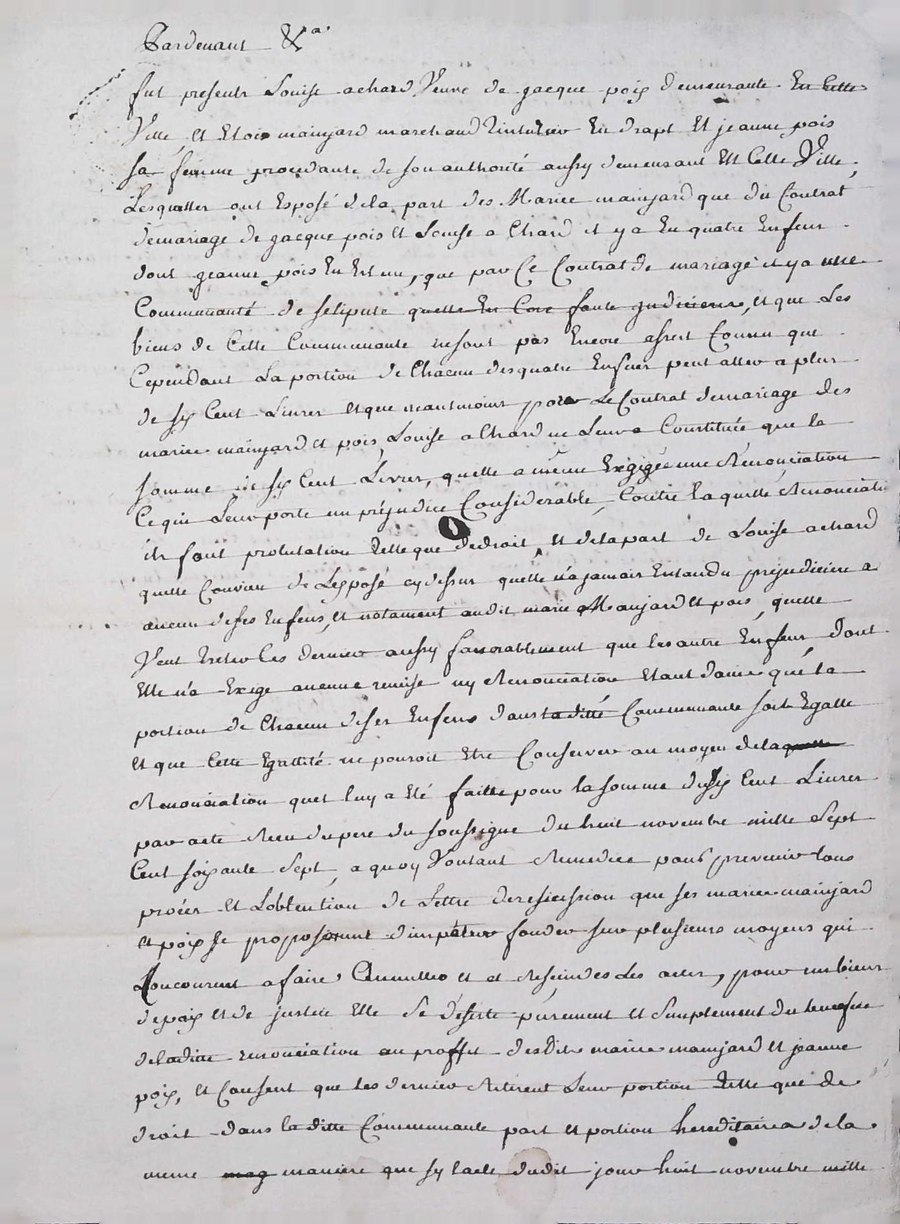 Pardevant &a
fut presente Louise achard Veuve de jacque pois demeurante En Cette
Ville et Etoie mainjard marchand teinturier En drapt Et jeanne pois
sa femme procedante de son authorité aussy demeurant En Cette Ville.
Lesqueller ont Exposé de la part des Mariee mainjard que du Contrat
demariage de jacque pois et Louise a Chard il y a Eu quatre Enfeur
dont jeanne pois En Est un, que par Ce Contrat de mariage il y a une
Communauté de stipulé quelle En Core faute judicieue, et que Les
biens de Cette Communaute nesont pas Encore assest Connu que
Cependant La portion de Chacun desquatre Enfeur peut aller a plur
de six Cent Livrer et que neantmoint par Le Contrat demariage des
mariee mainjard et pois Louise a Chard ne Leur a Constituée que la
somme de six Cent Livrer, quelle a même Exgigée une Renonciation
Ce qui Leur porte un préjudice Considerable, Contre laquelle Renonciation
ils font protestation telle que dedroit, et dela part de Louise achard
quelle Convien de Lexposé cy dessur quelle n'a jamair Entandu préjudiciere a
aucun deses Enfens, et notament audit marie Mainjard et pois, quelle
Veut traiter Ces dernier aussy favorablement que les autre Enfeur dont
Elle n'a Exige aucune remise ny Renonciation Etant dainé que la
portion de Chacun deser Enfens dans la ditte Communaute soit Egalle
et que Cette Egallité ne pouroit Etre Conservee au moyen de la quelle
Renonciation quel luy a Eté faitte pour la somme de six Cent Livrer
par acte Recu du pere du soussigne du huit novembre mille Sept
Cent soixante Sept, a quoy Voulant Remedier pour prevenir tous
procer et Lobtention de Lettre derescission que ses mariee mainjard
et pois se proposerunt dimpétrer fonder sur plusieurs moyens qui
Concourent a faire Annuller et et Resindes Les acter, pour un bienr
de paix et de justice Elle se déserte purement et simplement du benefice
deladitte renonciation au proffit desdits mariee mainjard et jeanne
pois, et Consent que les dernier Retirent Leur portion telle que de
droit dans la ditte Communaute part et portion hereditaire de la
meme mag maniere que sy lacte dudit jour huit novembre mille